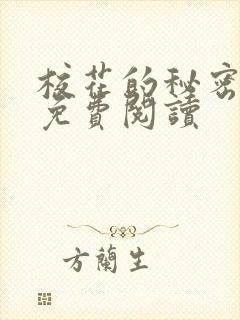 校花的秘密
免費閱讀
方蘭生